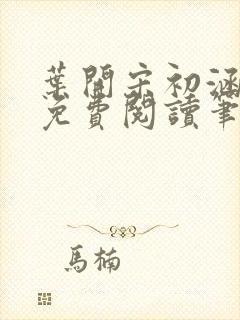 葉開宋初涵
免費閱讀筆
馬楠